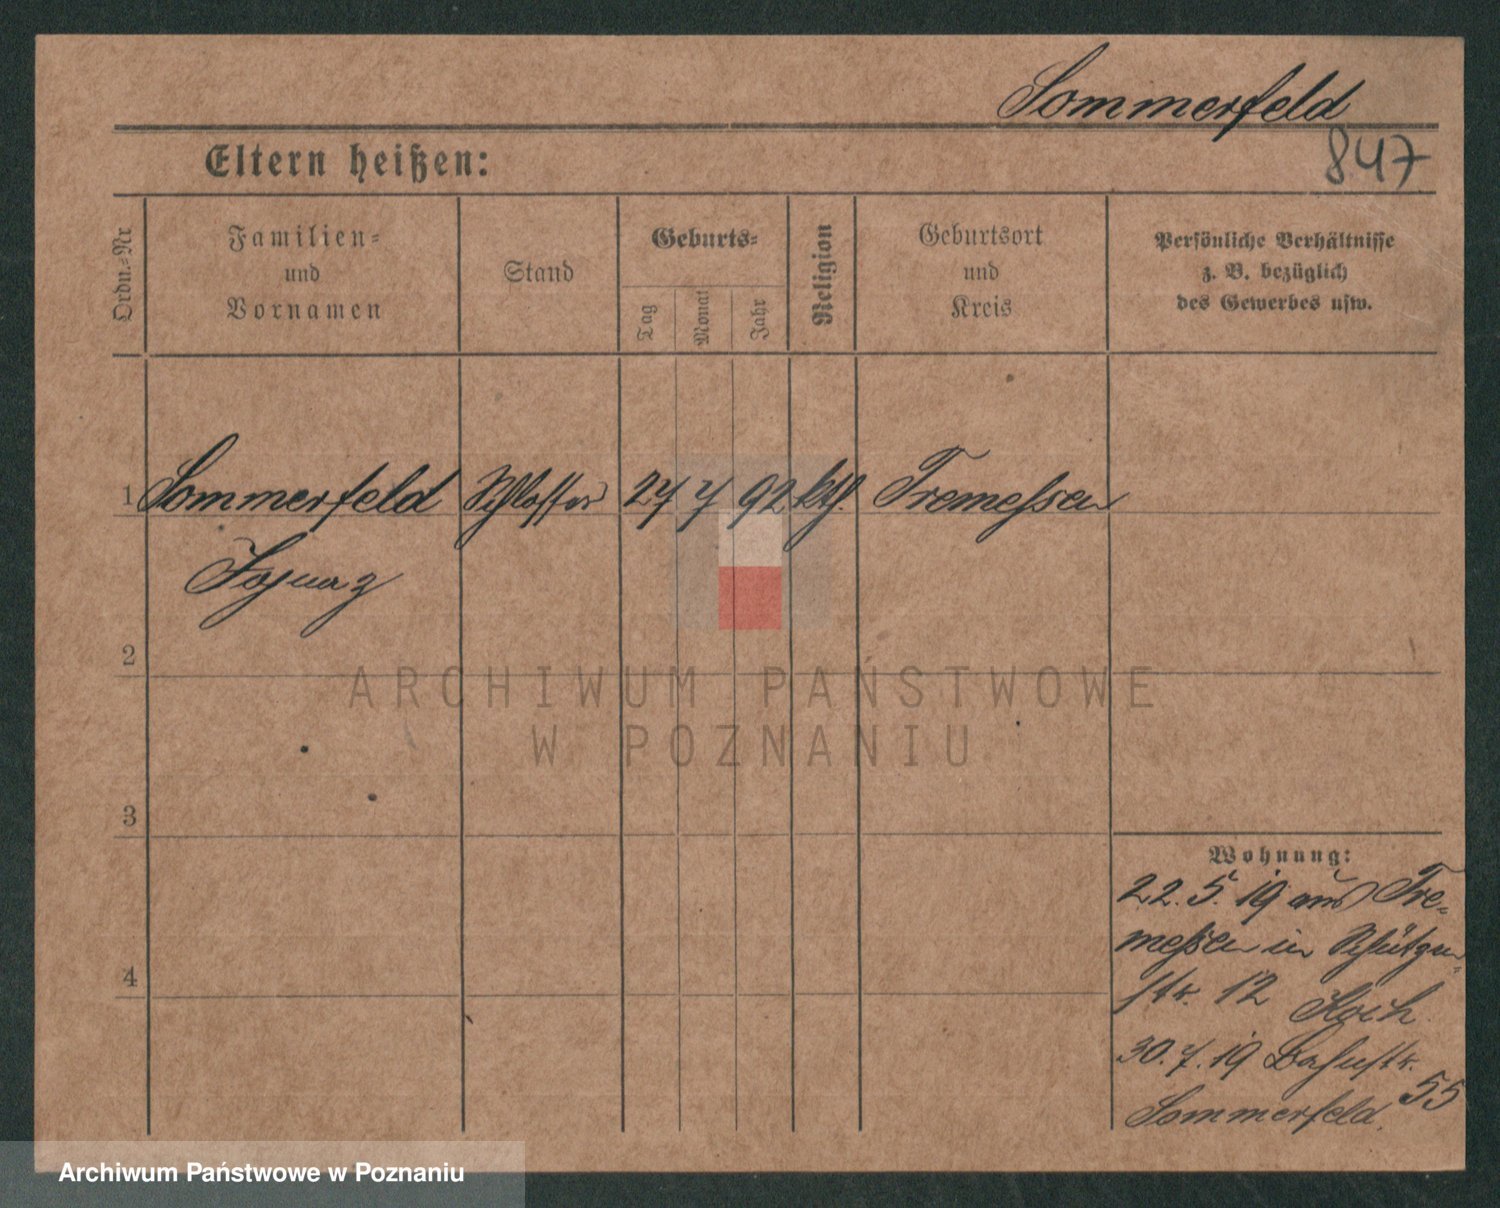 Sommerfeld
847
Eltern heißen:
Ordn.-Nr
Familien-
und
Vornamen
Stand
Geburts-
Tag
Monat
Jahr
Religion
Geburtsort
und
Kreis
Persönliche Verhältnisse
z. B. bezüglich
des Gewerbes usw.
1 Sommerfeld Schlosser 27 7 92 kth. Tremessen
Ignaz
2
ARCHIWUM PAŃSTWOWE
W POZNANIU
3
Wohnung:
22. 5. 19 aus Tre-
messen in Schützen-
4
str. 12 Koch.
30. 7. 19 Bahnstr.
55
Sommerfeld.
Archiwum Państwowe w Poznaniu